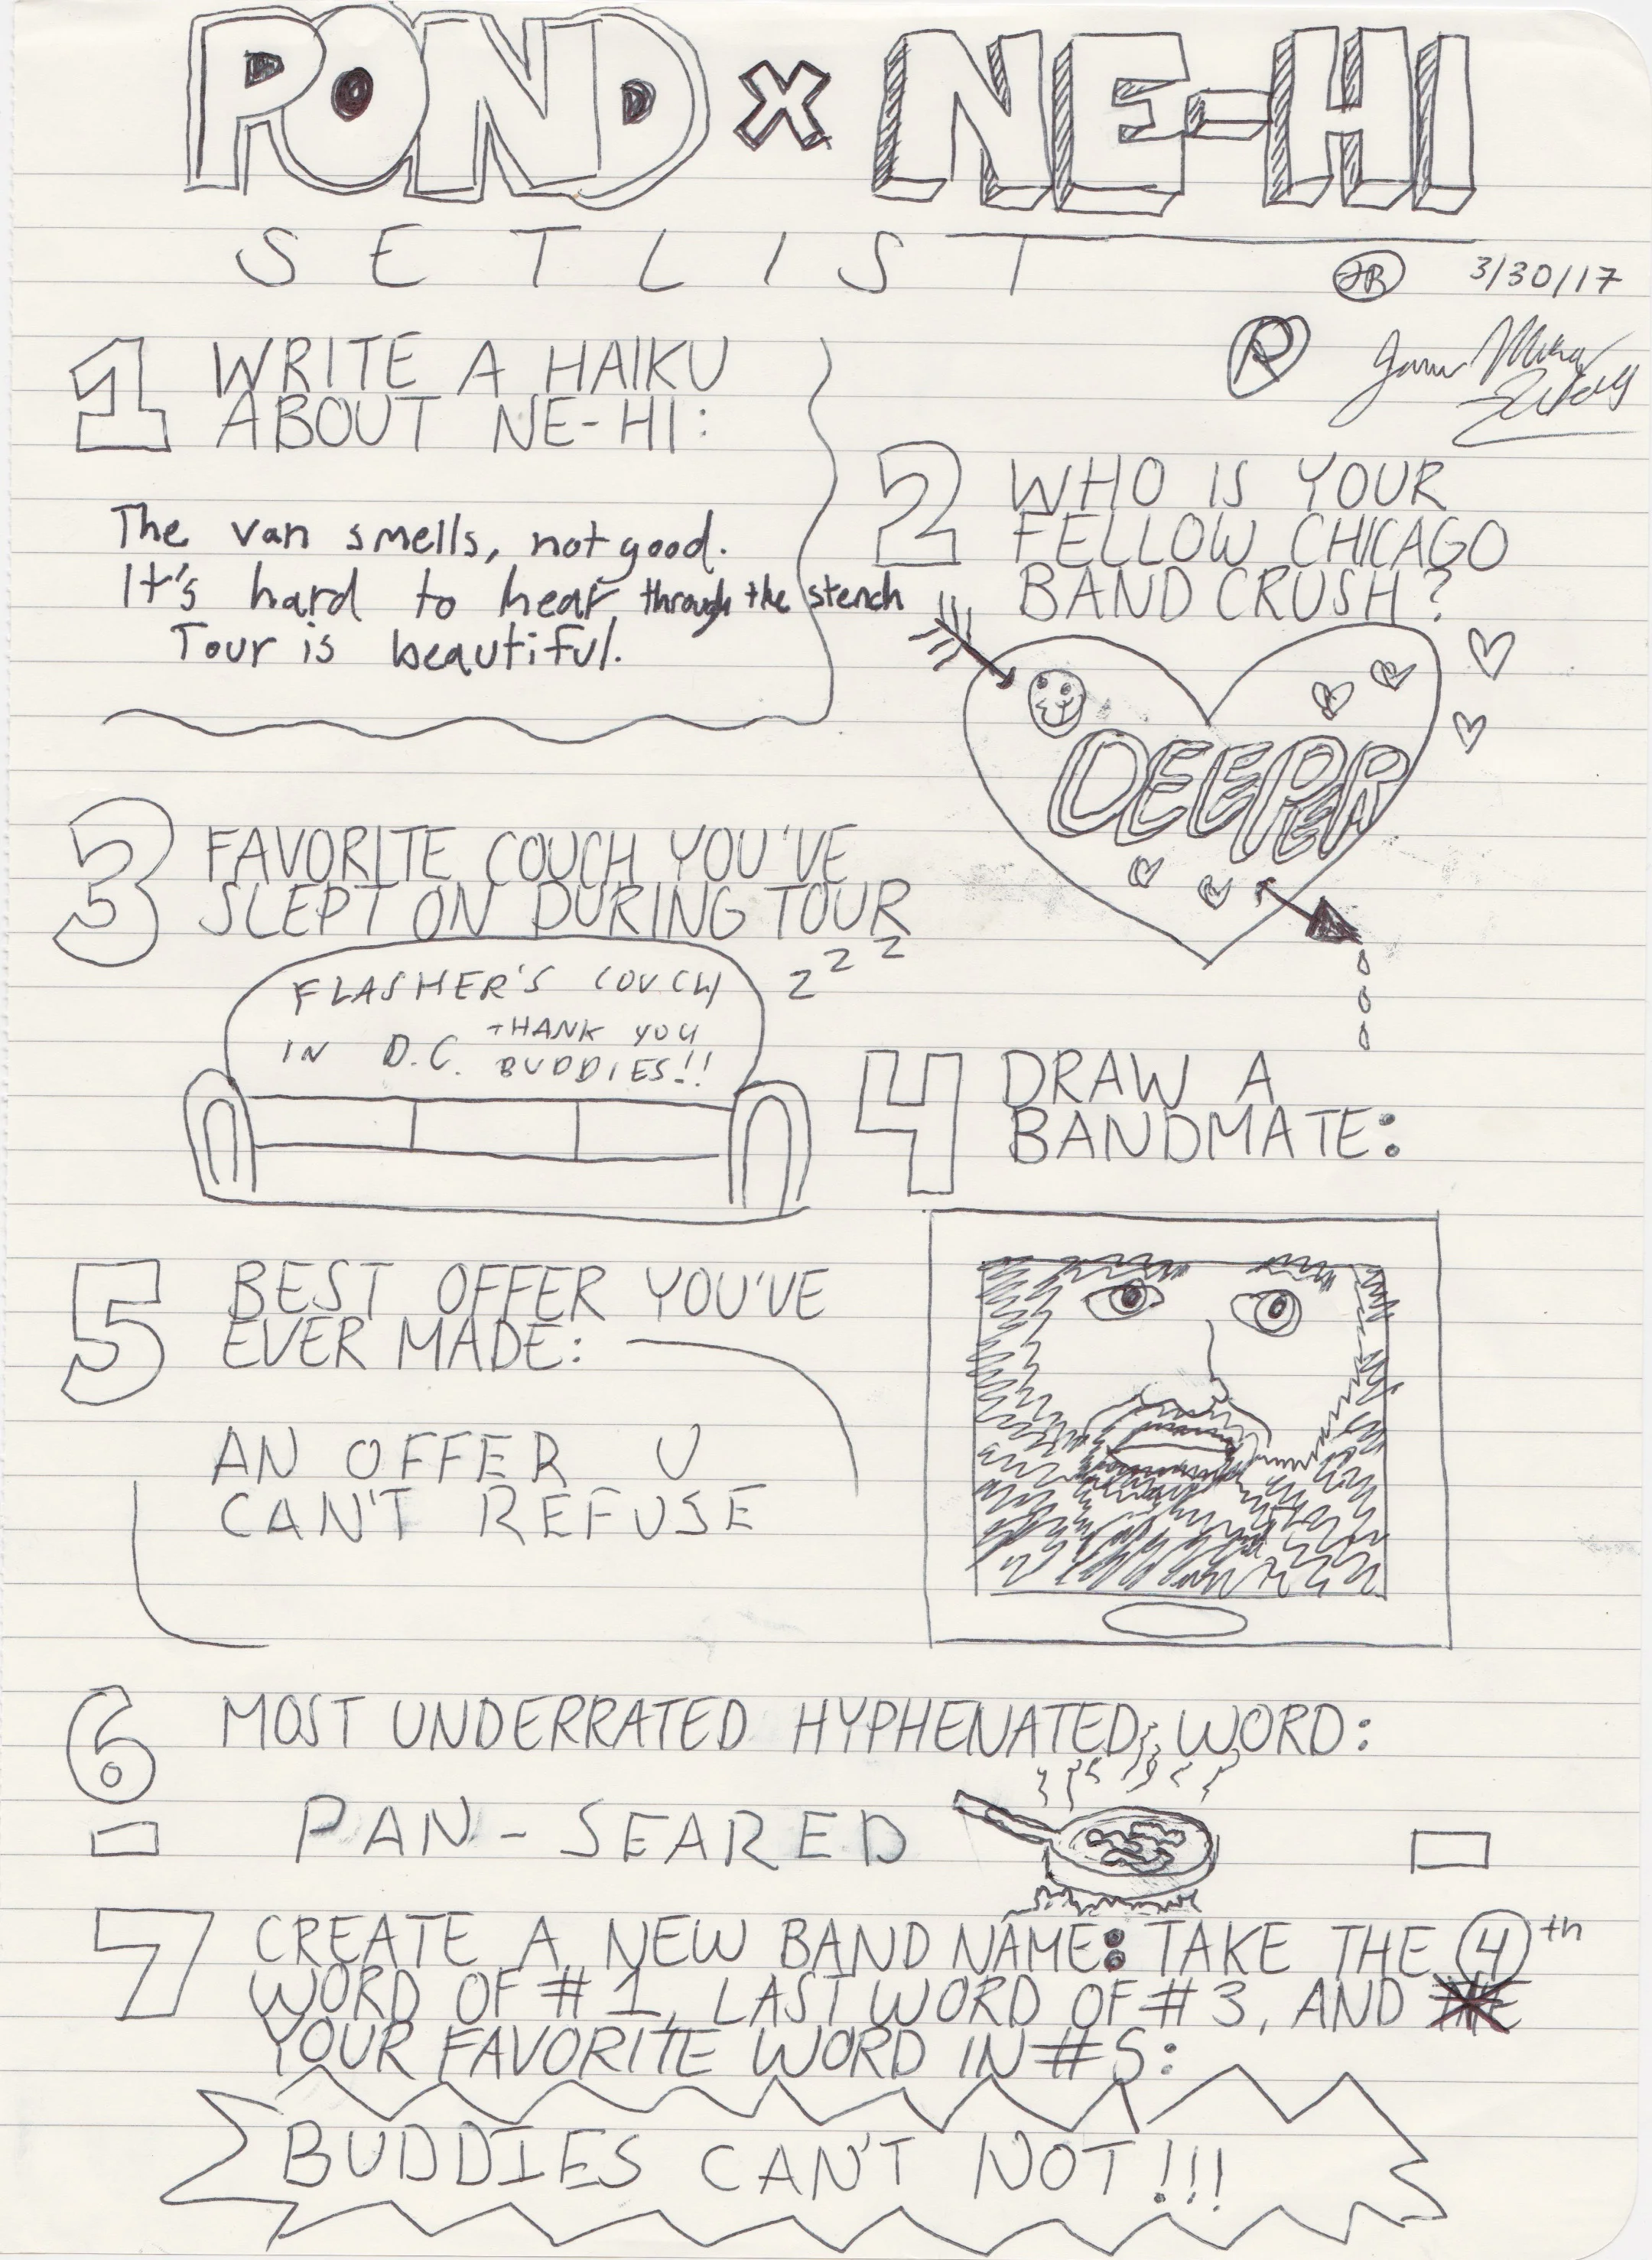 POND x NE-HI
SETLIST
JR 3/30/17
R
1 WRITE A HAIKU
ABOUT NE-HI:
The van smells, not good.
It's hard to hear through the stench
Tour is beautiful.
2 WHO IS YOUR
FELLOW CHICAGO
BAND CRUSH?
DEEPER
3 FAVORITE COUCH YOU'VE
SLEPT ON DURING TOUR
z z z
FLASHER'S COUCH
IN D.C. THANK YOU
BUDDIES!!
4 DRAW A
BANDMATE:
5 BEST OFFER YOU'VE
EVER MADE:
AN OFFER U
CAN'T REFUSE
6 MOST UNDERRATED HYPHENATED WORD:
PAN-SEARED
7 CREATE A NEW BAND NAME: TAKE THE 4th
WORD OF #1, LAST WORD OF #3, AND
YOUR FAVORITE WORD IN #5:
BUDDIES CAN'T NOT!!!